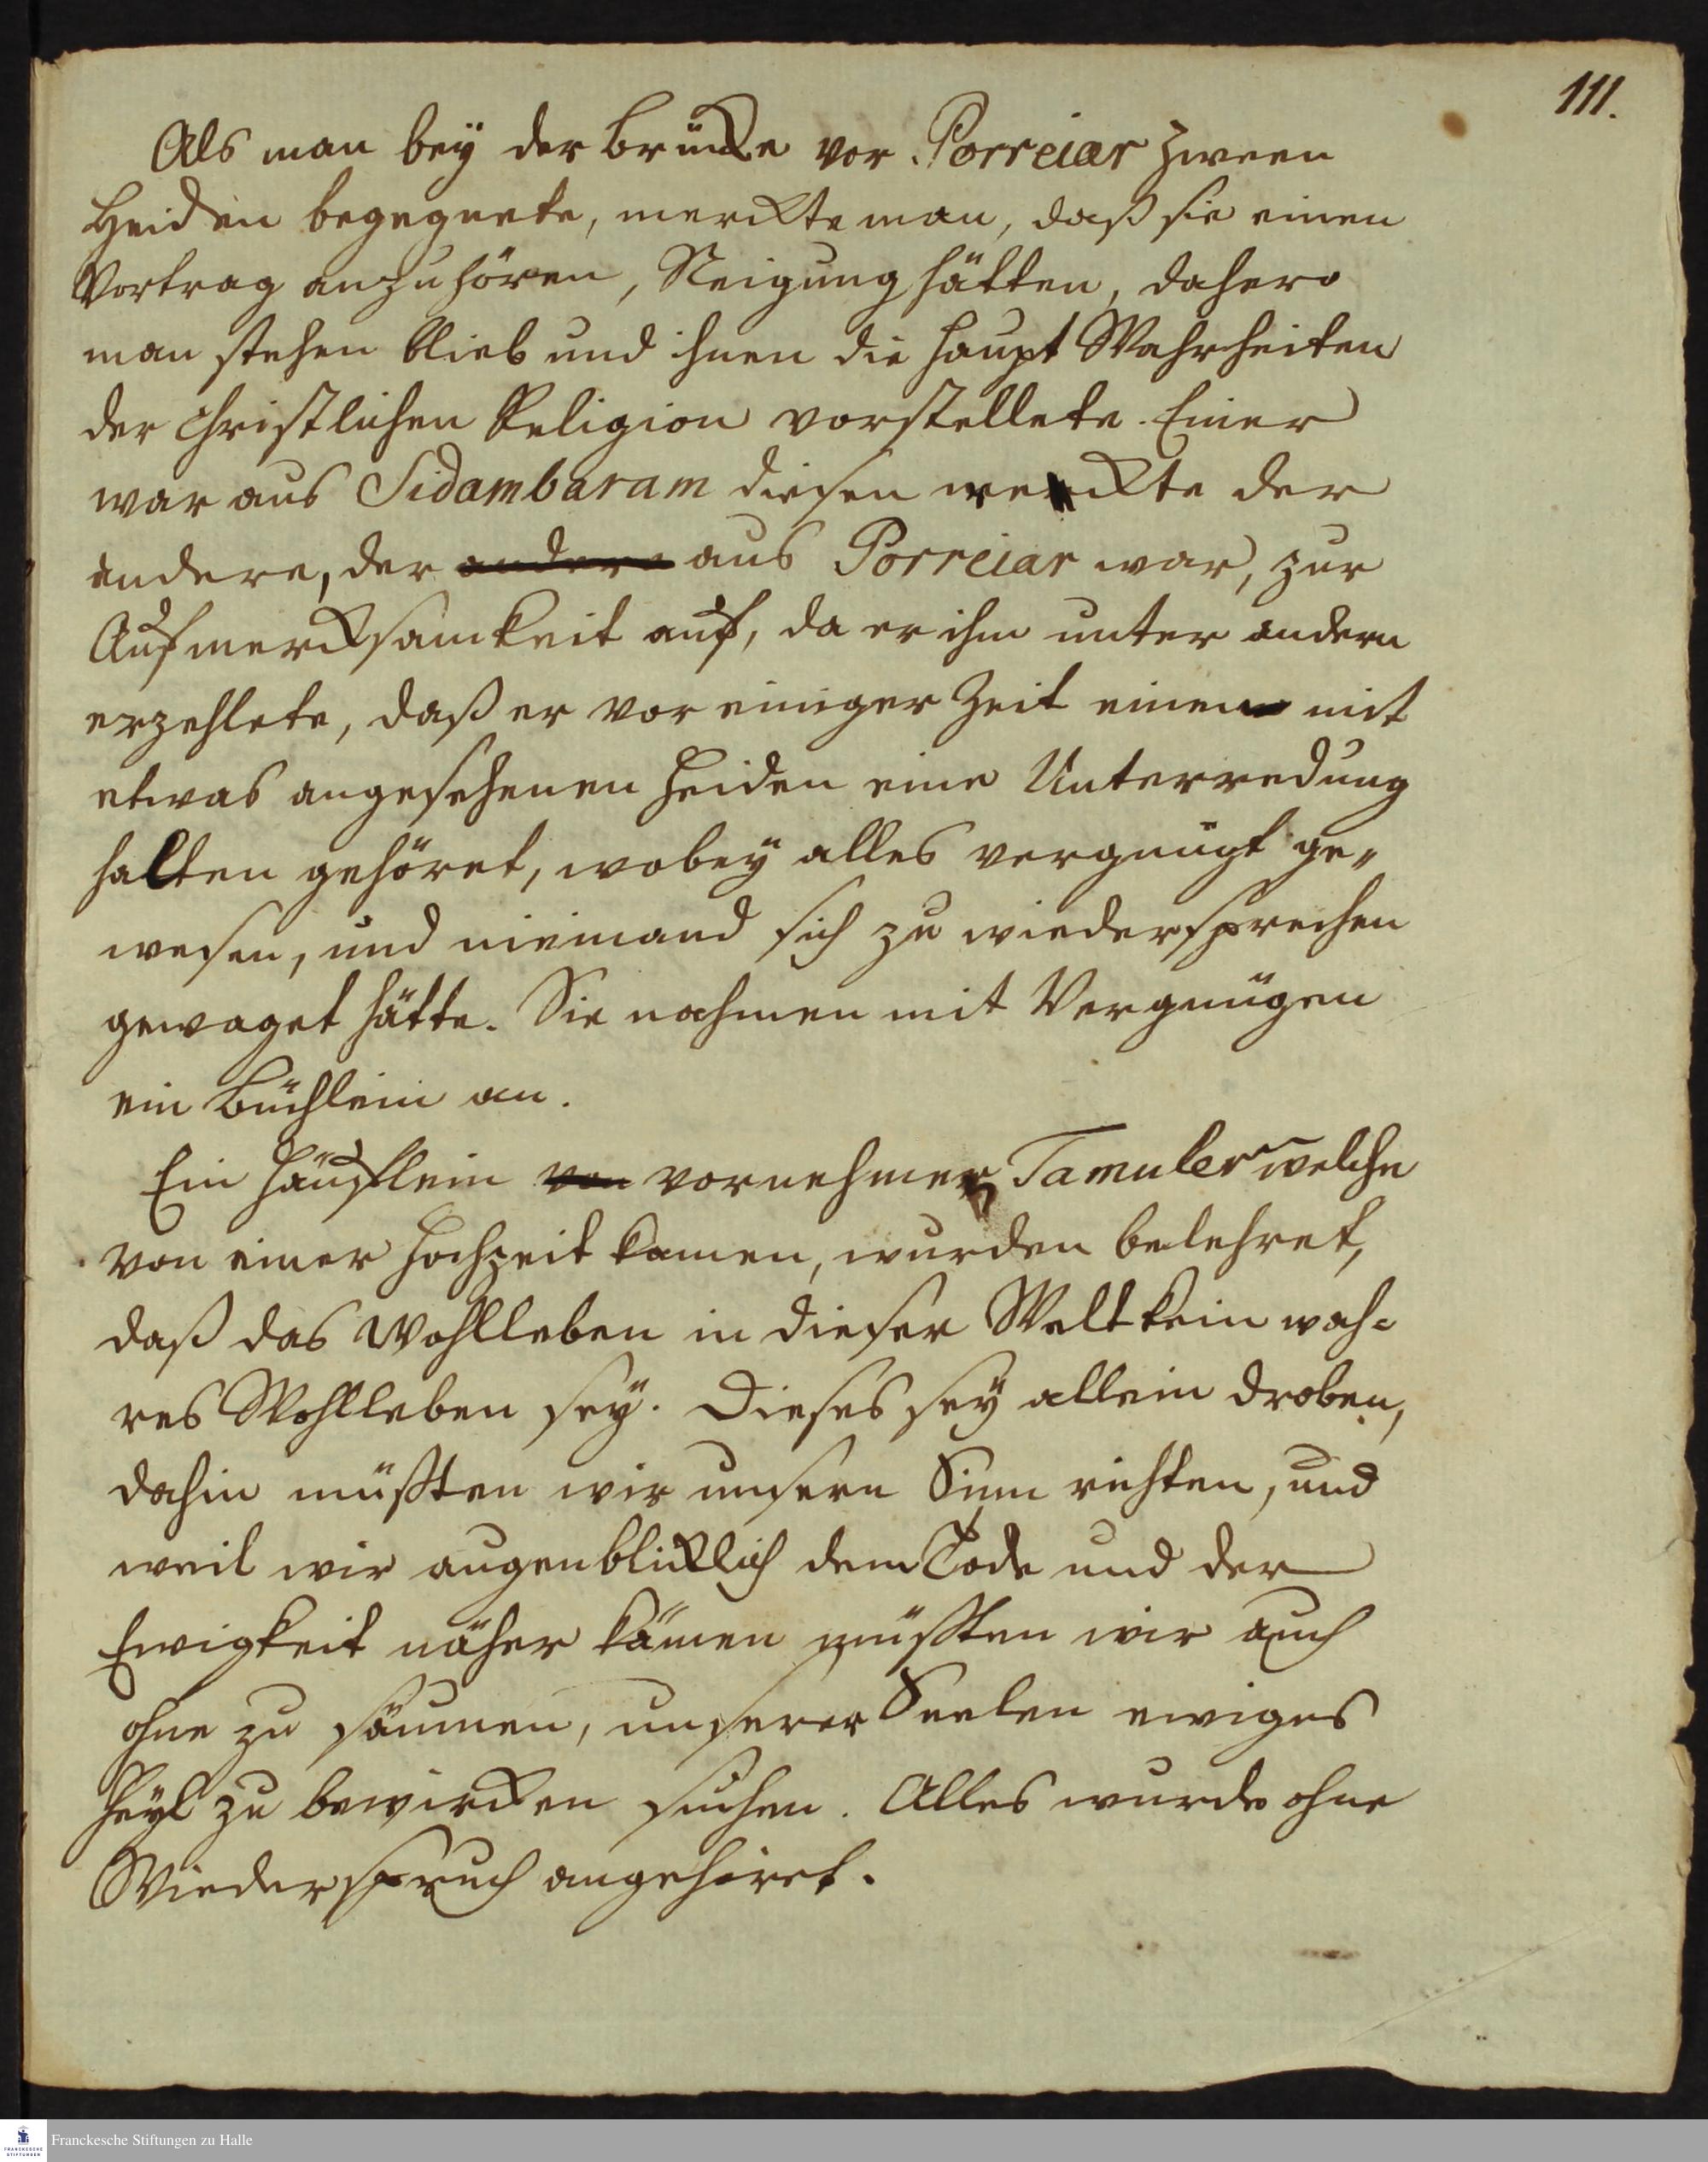 111.
Als man bey der Brücke vor Porreiar zween
Heiden begegnete, merckte man, daß sie einen
Vortrag anzuhören, Neigung hätten, dahero
man stehen blieb und ihnen die Haupt Wahrheiten
der christlichen Religion vorstellete. Einer
war aus Sidambaram diesen weckte der
andere, der andere aus Porreiar war, zur
Aufmercksamkeit auf, da er ihm unter andern
erzehlete, daß er vor einiger Zeit einen mit
etwas angesehenen Heiden eine Unterredung
halten gehöret, wobey alles vergnügt ge„
wesen, und niemand sich zu wiedersprechen
gewaget hätte. Sie nahmen mit Vergnügen
ein Büchlein an.
Ein Häuflein von vornehmer Tamuler welche
von einer Hochzeit kamen, wurden belehret,
daß das Wohlleben in dieser Welt kein wah=
res Wohlleben sey. Dieses sey allein droben,
dahin müßten wir unsern Sinn richten, und
weil wir augenblicklich dem Tode und der
Ewigkeit näher kämen müßten wir auch
ohne zu säumen, unserer Seelen ewiges
Heyl zu bewircken suchen. Alles wurde ohne
Wiederspruch angehöret.
Franckesche Stiftungen zu Halle
FRANCKESCHE
STIFTUNGEN